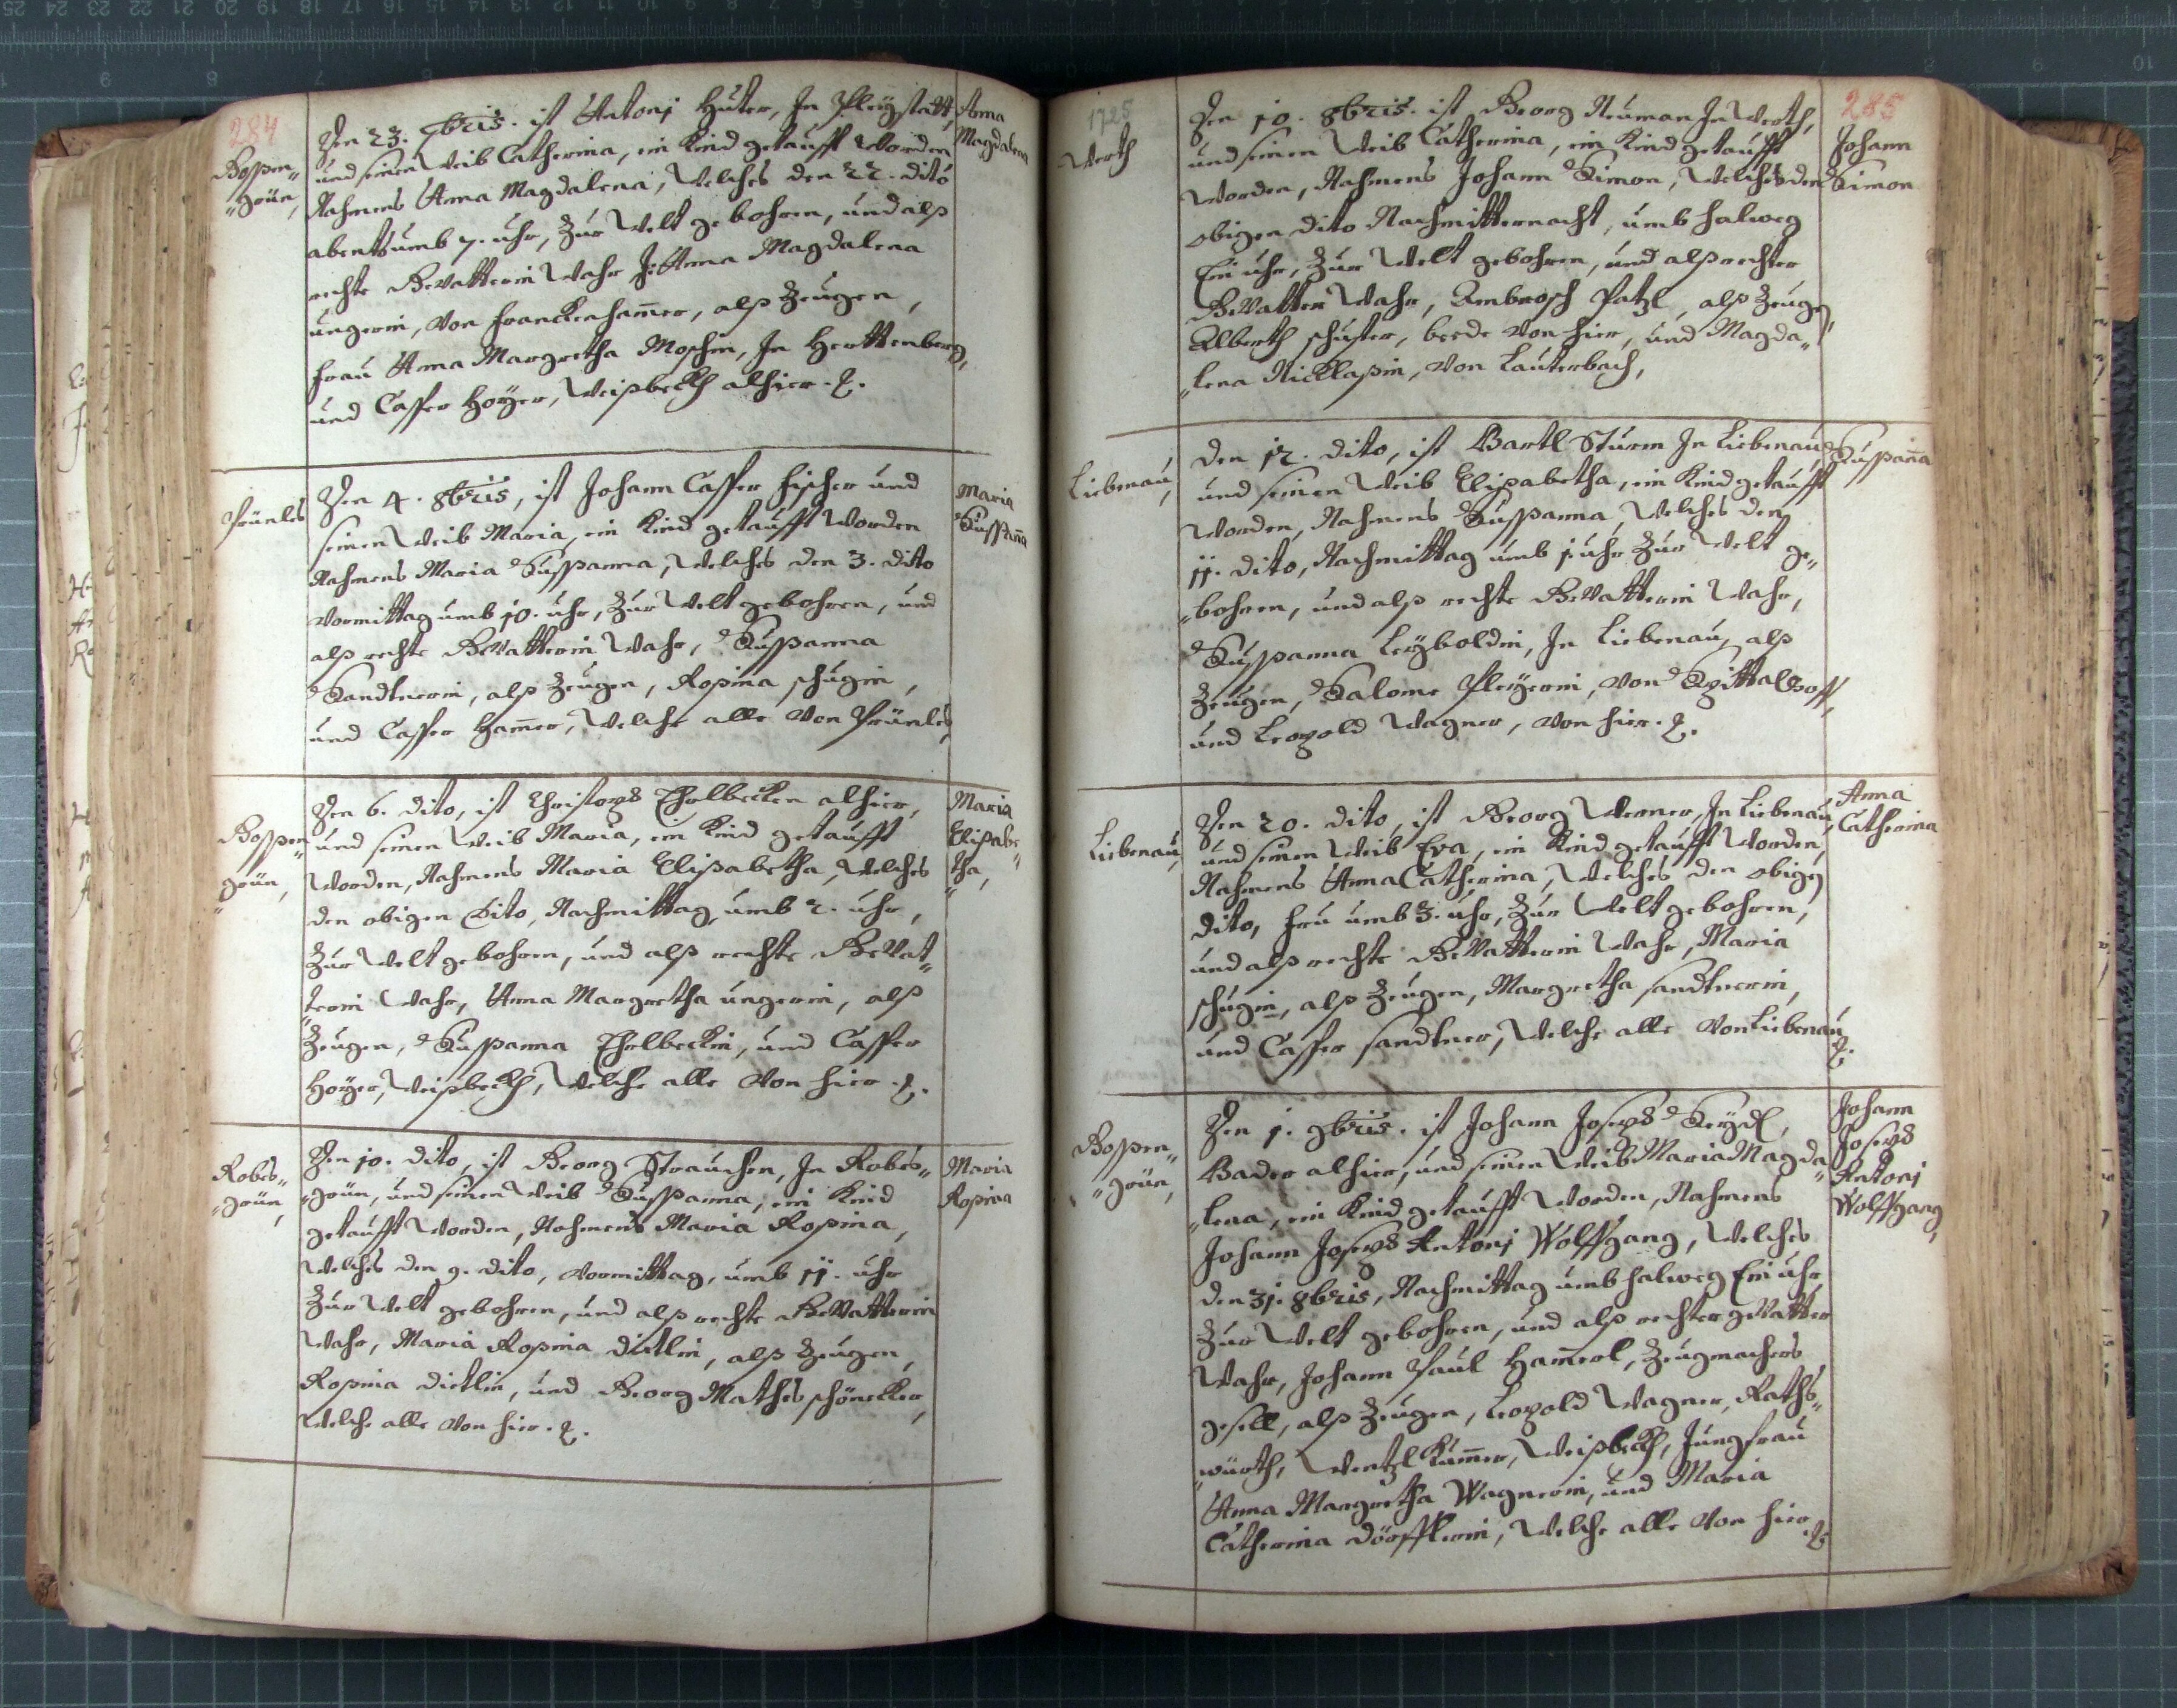 284
Boppen„
„grün,
Den 23. 7bris. ist Antonj Huter, In Pleÿstatt,
und seinen Weib Catherina, ein Kind getaufft worden
Nahmens Anna Magdalena, Welches den 22. dito
abents umb 7. uhr, Zur Welt gebohren, und alß
rechte Gevatterin Wahr J: Anna Magdalena
ungerin, von Franckenham̄er, alß Zeugen,
frau Anna Margretha Moschin, In Herttenberg,
und Casper Hoÿer, Weißbeckh alhier. 
Anna
Magdalena
Prünles
Den 4. 8bris, ist Johann Casper Fischer und
seinen Weib Maria, ein Kind getaufft Worden
Nahmens Maria Sußanna, Welches den 3. dito
Vormittag umb 10. uhr, Zur Welt gebohren, und
alß rechte Gevatterin Wahr, Sußanna
Sandtnerin, alß Zeugen, Rosina schugin,
und Casper Ham̄er, Welche alle Von Prünles,
Maria
Sußan̄a
Boppen„
„grün,
Den 6. dito, ist Christoph Thelbecken alhier,
und seinen Weib Maria, ein Kind getaufft
Worden, Nahmens Maria Elisabetha, Welches
den obigen Dito, Nachmittag umb 2. uhr,
Zur Welt gebohren, und alß rechte Gevat„
„terin Wahr, Anna Margretha ungerin, alß
Zeugen, Sußanna Thelbeckin, und Casper
Hoÿer, Weißbeckh, Welche alle Von hier. 
Maria
Elisabe„
„tha,
Robes„
„grün,
Den 10. dito, ist Georg Strauchen, In Robes„
„grün, und seinen Weib Sußanna, ein Kind
getaufft Worden, Nahmens Maria Rosina,
Welches den 9. dito, Vormittag, umb 11. uhr
Zur Welt gebohren, und alß rechte Gevatterin
Wahr, Maria Rosina Dietlin, alß Zeugen,
Rosina Dietlin, und Georg Mathes schönecker,
Welche alle Von hier. 
Maria
Rosina
1725
285
Werth
Den 10. 8bris. ist Georg Neuman In Werth,
und seinen Weib Catherina, ein Kind getaufft
Worden, Nahmens Johann Simon, Welches den
obigen dito Nachmitternacht, umb halweg
Ein uhr, Zur Welt gebohren, und alß rechter
Gevatter Wahr, Ambrosch Patzl, alß Zeugen,
Alberth schuster, beede Von hier, und Magda„
„lena Nicklaßin, Von Lauterbach,
Johann
Simon
Liebenau,
Den 12. dito, ist Bartl Sturm In Liebenau,
und seinen Weib Elisabetha, ein Kind getaufft
Worden, Nahmens Sußanna, Welches den
11. dito, Nachmittag umb 1. uhr Zur Welt ge„
„bohren, und alß rechte Gevatterin Wahr,
Sußanna Leÿboldin, In Liebenau, alß
Zeugen, Salome Pleÿerin, Von Spittalhoff,
und Leopold Wagner, Von hier. 
Sußan̄a
Liebenau,
Den 20. dito, ist Georg Werner, In Liebenau,
und seinen Weib Eva, ein Kind getaufft Worden,
Nahmens Anna Catherina, Welches den obigen
dito, fru umb 3. uhr, Zur Welt gebohren,
und alß rechte Gevatterin Wahr, Maria
schugin, alß Zeugen, Margretha sandtnerin,
und Casper sandtner, Welche alle Von Liebenau
Anna
Catherina
Boppen„
„grün,
Den 1. 9bris. ist Johann Joseph Seÿdl,
Bader alhier, und seinen Weib Maria Magda„
„lena, ein Kind getaufft Worden, Nahmens
Johann Joseph Antonj Wolffgang, Welches
den 31. 8bris, Nachmittag umb halweg Ein uhr,
Zur Welt gebohren, und alß rechter geVatter
Wahr, Johann Paul Ham̄erl, Zeugmachers
gesell, alß Zeugen, Leopold Wagner, Raths„
„würth, Wentzl Kum̄er, Weißbeckh, Jungfrau
Anna Margretha Wagnerin, und Maria
Catherina Dörfflerin, Welche alle Von hier
Johann
Joseph
Antonj
Wolffgang,